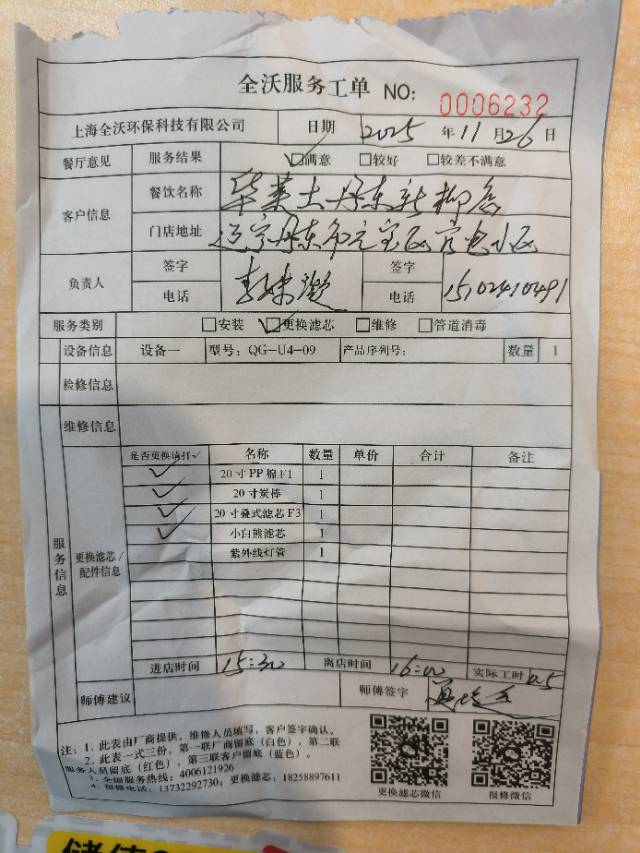 全沃服务工单 NO: 0006232
上海全沃环保科技有限公司 日期 2025 年 11 月 26 日
餐厅意见 服务结果 ☑满意 □较好 □较差不满意
客户信息 餐饮名称 华莱士丹东新柳店
门店地址 辽宁丹东市元宝区官电小区
负责人 签字 签字
电话 电话 15102410491
服务类别 □安装 ☑更换滤芯 □维修 □管道消毒
设备信息 设备一 型号: QG-U4-09 产品序列号: 数量 1
检修信息
维修信息
服务信息
更换滤芯/配件信息
是否更换请打✓ 名称 数量 单价 合计 备注
✓ 20寸PP棉F1 1
✓ 20寸炭棒 1
✓ 20寸叠式滤芯F3 1
✓ 小白熊滤芯 1
紫外线灯管 1
进店时间 15:30 离店时间 16:00 实际工时 0.5
师傅建议 师傅签字
注: 1. 此表由厂商提供, 维修人员填写, 客户签字确认。
2. 此表一式三份, 第一联厂商留底(白色), 第二联
服务人员留底(红色), 第三联客户留底(蓝色)。
3. 全国服务热线: 4006121926
4. 报修电话: 13732292730; 更换滤芯: 18258897611
更换滤芯微信 报修微信